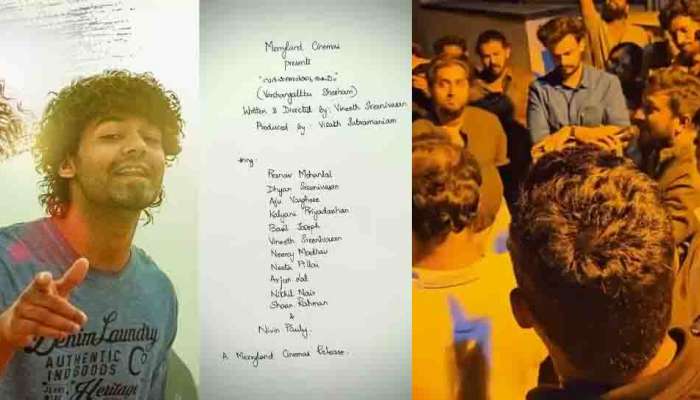 Denim Laundry
AUTHENTIC Co
INDGOODS
Heritage
Merryland Cinemas
presents
"വർഷങ്ങൾക്കു ശേഷം"
(Varshangalkku Shesham)
Written & Directed by: Vineeth Sreenivasan
Produced by: Visakh Subramaniam
Pranav Mohanlal
Dhyan Sreenivasan
Aju Varghese
Kalyani Priyadarshan
Basil Joseph
Vineeth Sreenivasan
Neeraj Madhav
Neeta Pillai
Arjun Lal
Nikhil Nair
Shaan Rahman
&
Nivin Pauly.
A Merryland Cinemas Release.